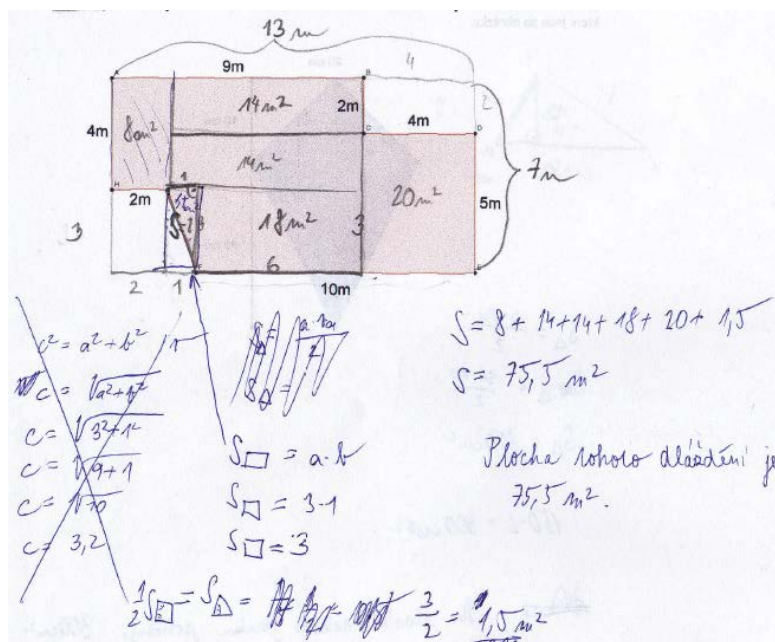 13 m
9m
4
A
B
14m²
2m
2
8m²
4m
C
4m
D
14m²
7m
1
H
2m
1,5
18m²
3
20m²
5m
3
6
2
1
10m
c² = a² + b²
c = √a²+b²
c = √3²+1²
c = √9+1
c = √10
c = 3,2
S△ = a·va / 2
S△ =
S▭ = a·b
S□ = 3·1
S□ = 3
1/2 S□ = S△ = 3/2 = 1,5 m²
S = 8 + 14+14 + 18 + 20 + 1,5
S = 75,5 m²
Plocha tohoto dláždění je
75,5 m².